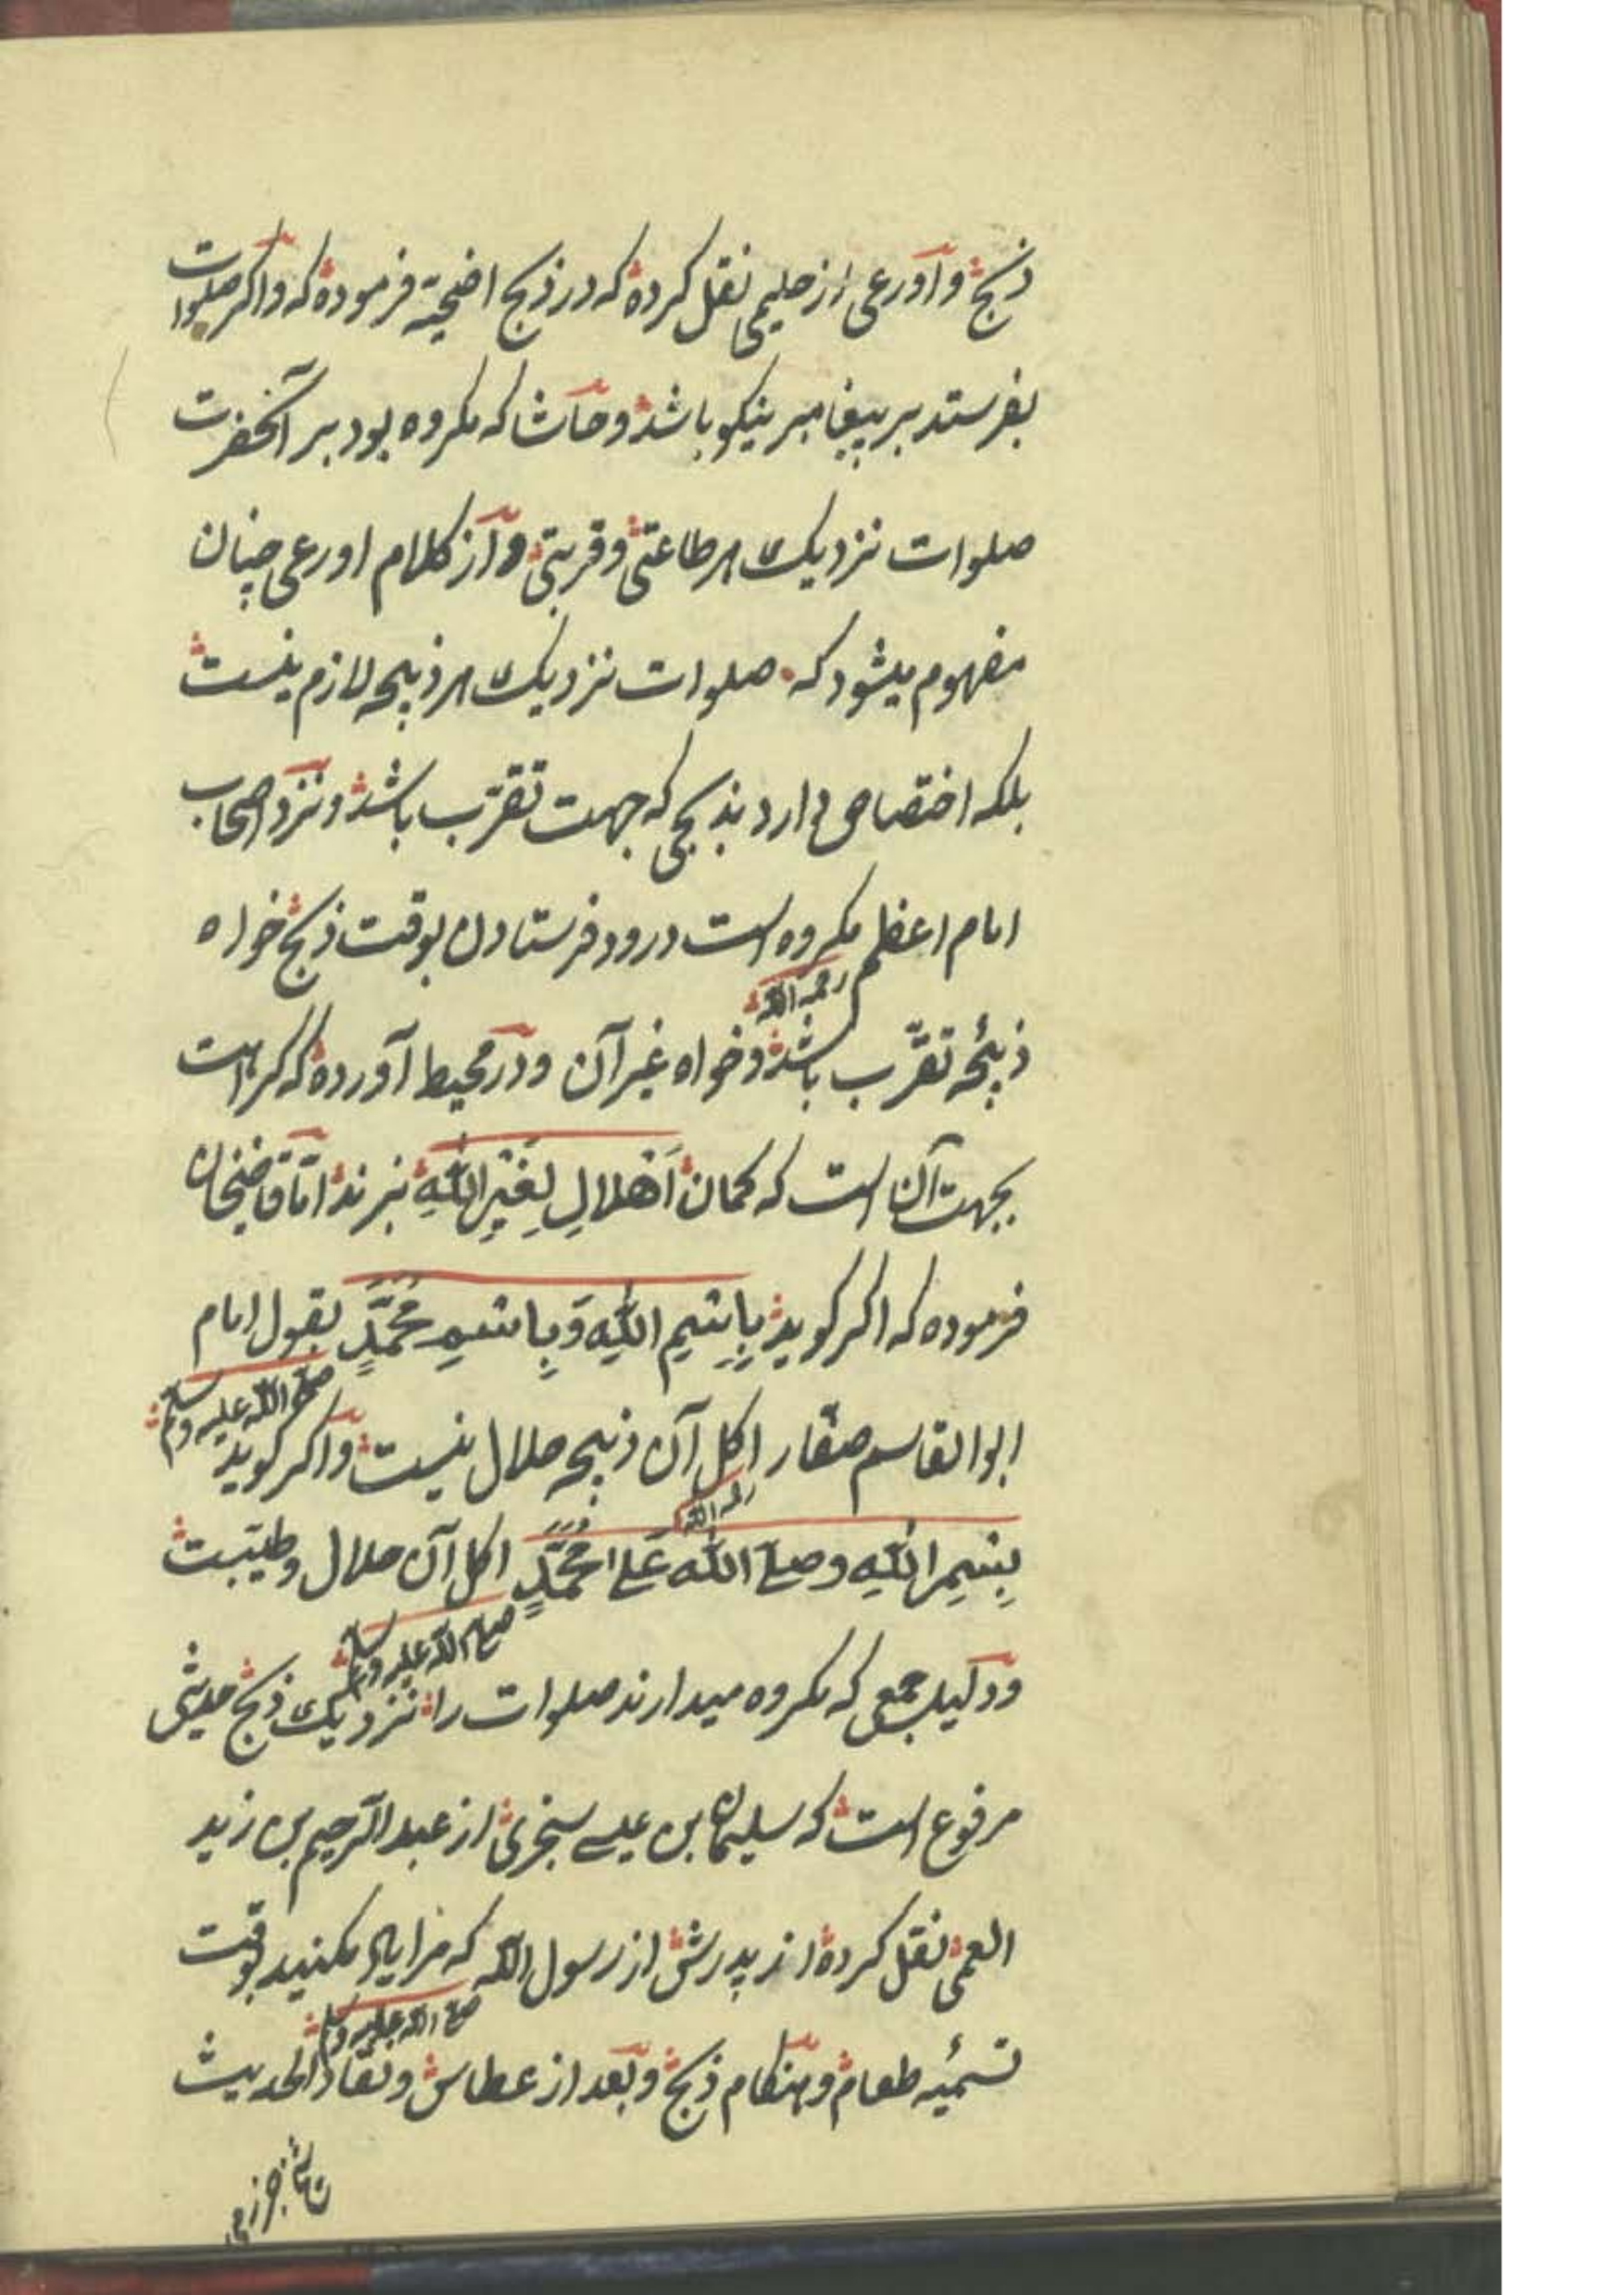 ذبح و اورعی از حلیمی نقل کرده که در ذبح اضحیة فرموده که واکر صلوات
بفرستد بر پیغامبر نیکو باشد و حاشا که مکروه بود بر آنحضرت
صلوات نزدیک هر طاعتی و قربتی و از کلام اورعی چنان
مفهوم میشود که صلوات نزدیک هر ذبیحه لازم نیست
بلکه اختصاص دارد بذبحی که جهت تقرّب باشد و نزد اصحاب
امام اعظم مکروه است درود فرستادن بوقت ذبح خواه
رحمه الله
ذبیحه تقرّب باشد و خواه غیر آن و در محیط آورده که کراهت
بجهت آن است که کمان اَهْلالِ لِغَیْرِ اللّٰهِ نبرند امّا قاضیخان
فرموده که اکر کوید بِاِسْمِ اللّٰهِ وَبِاسْمِ مُحَمَّدٍ بقول امام
صلی الله علیه وسلم
ابوالقاسم صفّار اکل آن ذبیحه حلال نیست و اکر کوید
رحمه الله
بِسْمِ اللّٰهِ وصلی اللّٰه عَلی مُحَمَّدٍ اکل آن حلال و طیّبست
صلی الله علیه وسلم
و دلیل جمعی که مکروه میدارند صلوات را نزدیک ذبح حدیثی
مرفوع است که سلیمان بن عیسی سنجری از عبدالرّحیم بن زید
العمی نقل کرده از پدرش از رسول الله که مرا یاد مکنید بوقت
صلی الله علیه وسلم
تسمیه طعام و هنکام ذبح و بعد از عطاس و نقاد الحدیث